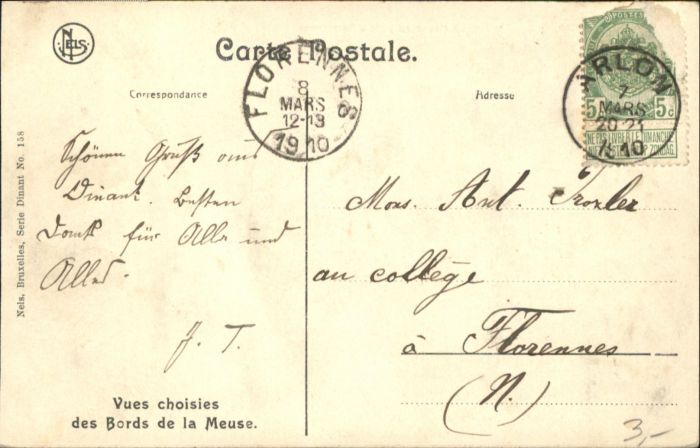 NELS
Carte Postale.
Correspondance
Adresse
FLORENNES
8
MARS
12-13
1910
POSTES
ARLON
7
MARS
20-21
1910
5 5c
NE PAS LIVRER LE DIMANCHE
NIET BESTELLEN OP ZONDAG
Schönen Gruß aus
Dinant. Besten
Dank für Alle und
Alles.
J. T.
Mons. Ant. Troxler
au collège
à Florennes
(N.)
Nels, Bruxelles, Serie Dinant No. 158
Vues choisies
des Bords de la Meuse.
3,-